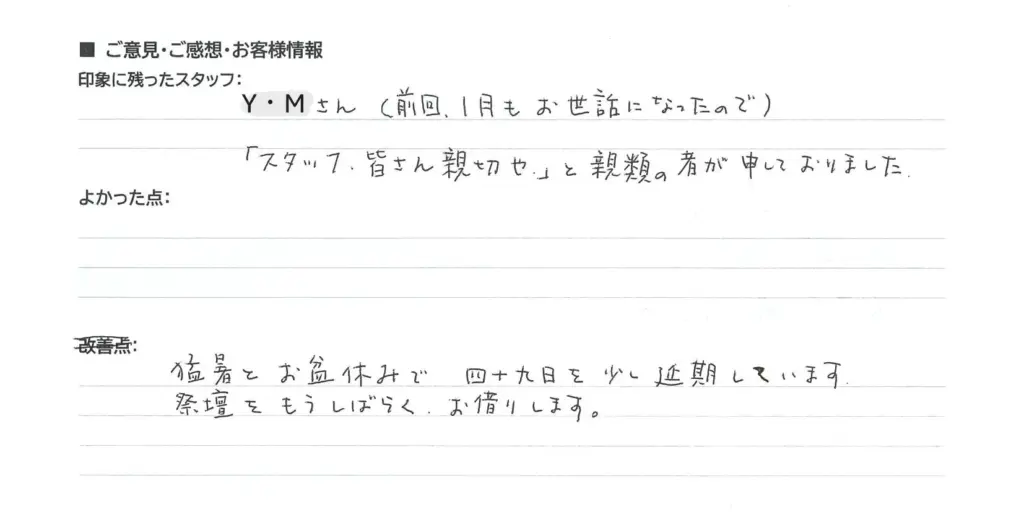 ■ ご意見・ご感想・お客様情報
印象に残ったスタッフ:
Y・Mさん（前回、1月もお世話になったので）
「スタッフ、皆さん親切や。」と親類の者が申しておりました。
よかった点:
改善点:
猛暑とお盆休みで 四十九日を少し延期しています。
祭壇をもうしばらく、お借りします。